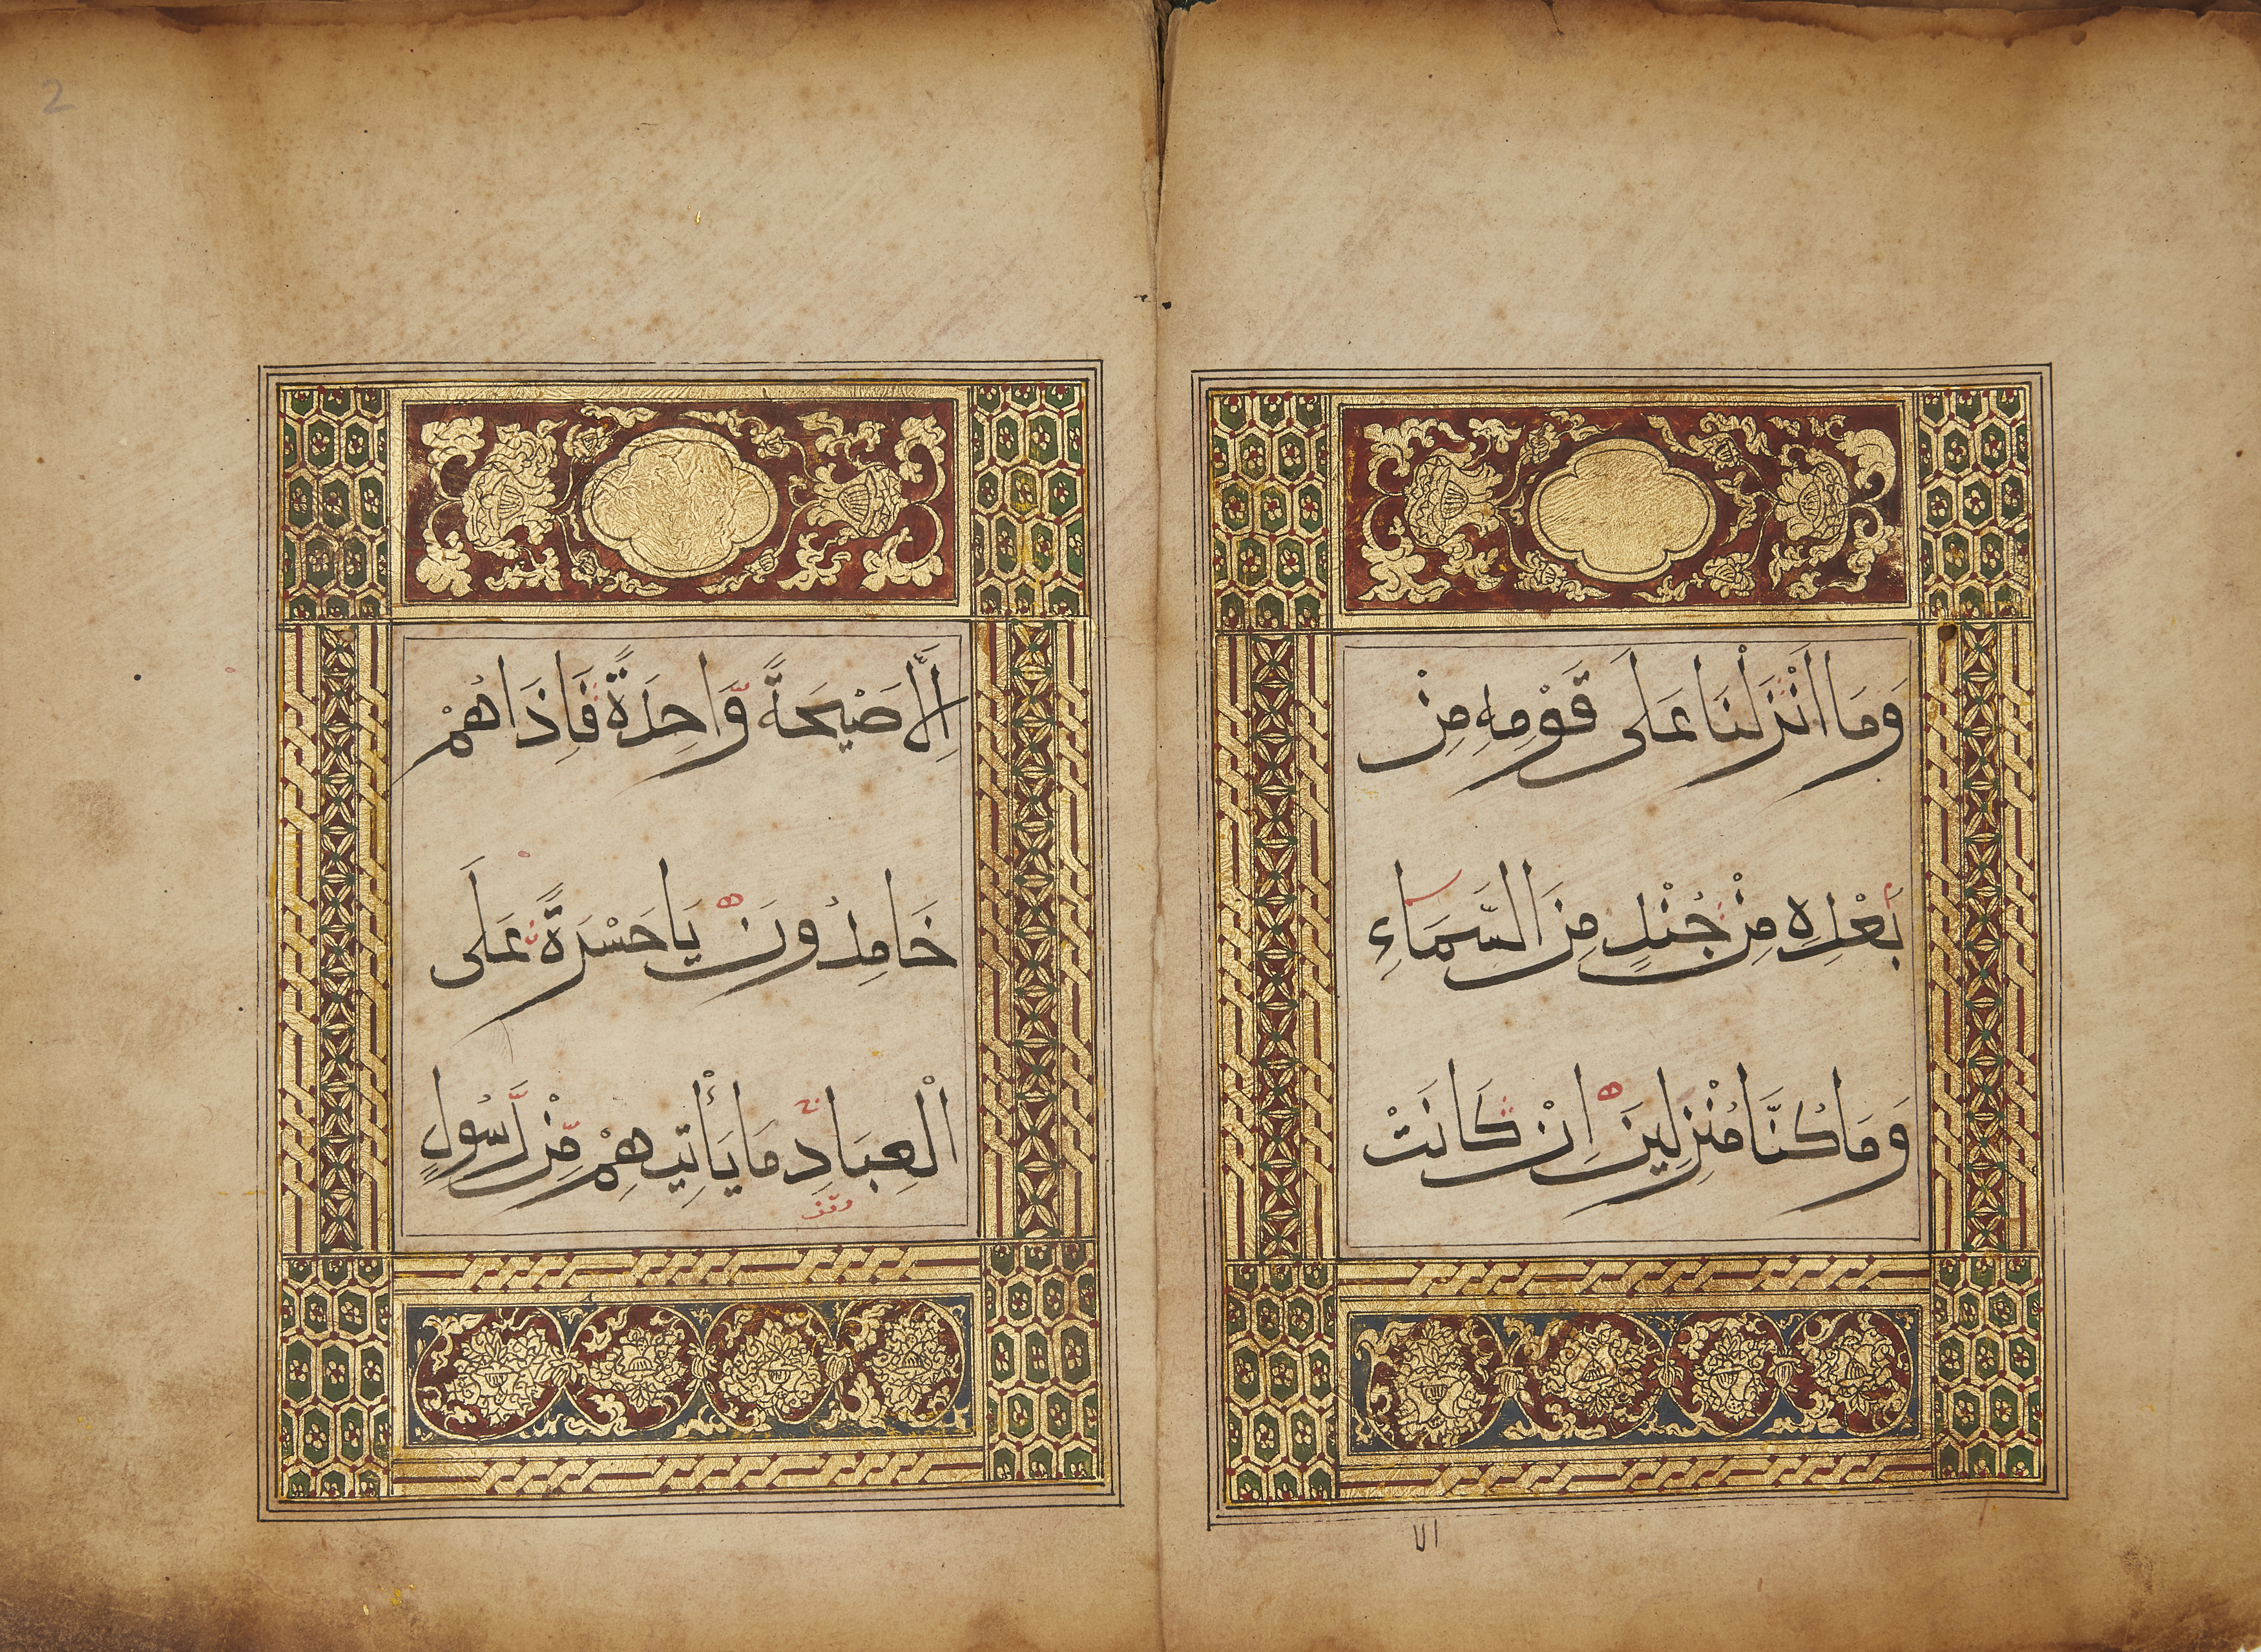 وَمَا اَنْزَلْنَا عَلَى قَوْمِهِ مِنْ
بَعْدِهِ مِنْ جُنْدٍ مِنَ السَّمَاءِ
وَمَا كُنَّا مُنْزِلِينَ اِنْ كَانَتْ
الا
اِلَّا صَيْحَةً وَّاحِدَةً فَاِذَا هُمْ
خَامِدُونَ يَا حَسْرَةً عَلَى
الْعِبَادِ مَا يَأْتِيهِمْ مِّنْ رَّسُولٍ
وقف
2